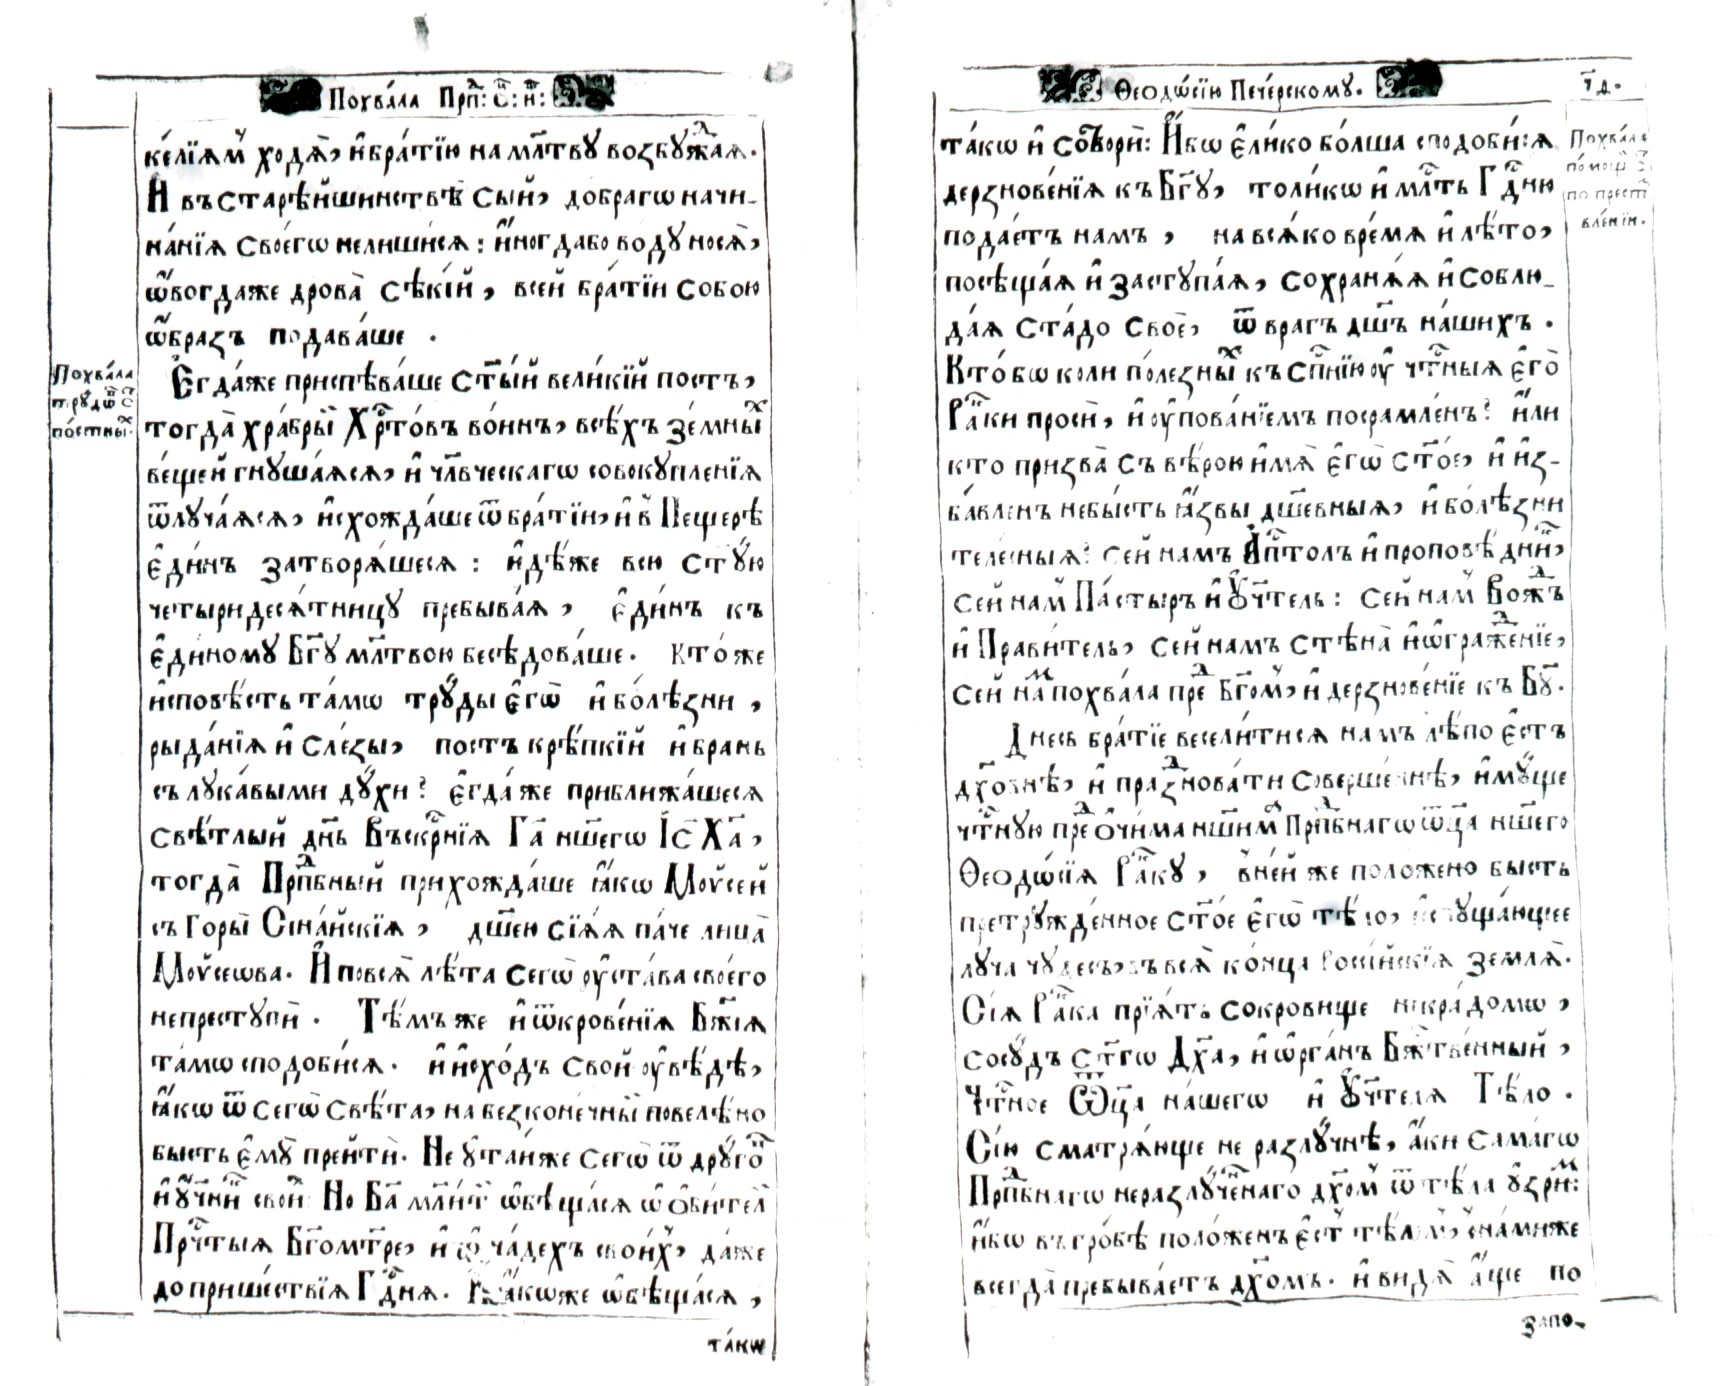 Похва́ла Прⷣп: Ѻ҃: н҃:
ке́лїѧмъ ходѧ̀, и҆ бра́тїю на мл҃тву возбужⷣаѧ.
И въ старѣ́йшинствѣ сы́й, до́брагѡ начи-
на́нїѧ своегѡ̀ нелиши́сѧ: и҆ногда́бо во́ду носѧ̀,
ѡ҆вогда́же дрова̀ сѣкі́й, всей бра́тїи собо́ю
ѡ҆́бразъ подава́ше.
Похва́ла
трꙋдѡ́в
по́стны̑.
Є҆гда́же приспѣва́ше ст҃ы́й вели́кїй постъ,
тогда̀ хра́брый Хрⷭ҇то́въ во́инъ, всѣ́хъ земны́хъ
ве́щей гнꙋша́ѧсѧ, и҆ чл҃вческагѡ совокꙋпленїѧ
ѿлꙋча́ѧсѧ, и҆схожда́ше ѿ бра́тїи, и҆ в̾ Пещерѣ
є҆ди́нъ затворѧ́шесѧ: и҆дѣ́же всю ст҃ꙋ́ю
четыридесѧ́тницꙋ пребыва́ѧ, є҆ди́нъ къ
є҆ди́номꙋ Бг҃ꙋ мл҃твою бесѣ́дова́ше. Кто́ же
и҆сповѣ́сть та́мѡ трꙋды̀ є҆гѡ̀ и҆ болѣ́зни,
рыда́нїѧ и҆ сле́зы, постъ крѣ́пкїй и҆ брань
съ лꙋка́выми дꙋ́хи? є҆гда́ же приближа́шесѧ
свѣ́тлый дн҃ь Въскрⷭ҇нїѧ Гⷭ҇а нш҃егѡ І҆с҃ Хⷭ҇а,
тогда̀ Прⷣпбный прихожда́ше ꙗ҆́кѡ Мѡѷсе́й
съ Горы̀ Сїна́йскїѧ, дш҃е́ю сїѧ́ѧ па́че лица̀
Мѡѷсеѡва. И҆ повсѧ̀ лѣ́та сегѡ̀ ᲂу҆ста́ва своего̀
непрестꙋпѝ. Тѣ́мъже и҆ ѿкрове́нїѧ Бж҃їѧ
та́мѡ сподоби́сѧ. и҆ и҆схо́дъ свой ᲂу҆вѣ́дѣ,
ꙗ҆́кѡ ѿ сегѡ̀ свѣ́та, на безконе́чный повелѣ́но
бысть є҆мꙋ̀ прейтѝ. Не ᲂу҆таи́же сегѡ̀ ѿ дрꙋго́в
и҆ ᲂу҆ч҃нкъ свои́х: Но Бг҃а мл҃и́ти ѡ҆бѣща́сѧ ѡ҆ ѻ҆би́тели
Прⷭ҇тыѧ Бг҃ома́тре, и҆ ѡ҆ ча́дехъ свои́хъ, да́же
до прише́ствїѧ Гⷭ҇днѧ. ꙗ҆́кѡже ѡ҆бѣща́сѧ,
та́кѡ
Ѳеодѡ́сїю Пече́рскомꙋ.
т҃д.
та́кѡ и҆ сотворѝ: И҆́бѡ є҆ли́ко бо́лша сподоби́сѧ
дерзнове́нїѧ къ Бг҃ꙋ, толи́кѡ и҆ млⷭ҇ть Гⷭ҇дню
подае́тъ намъ, на всѧ́ко вре́мѧ и҆ лѣ́то,
посѣща́ѧ и҆ застꙋпа́ѧ, сохранѧ́ѧ и҆ соблю-
да́ѧ ста́до своѐ, ѿ врагъ дш҃ъ на́шихъ.
Похва́ла
по́мощи
по преста
вле́нїи.
Кто́бѡ коли поле́зных къ сп҃нїю ᲂу҆ чⷭ҇тныѧ є҆го̀
Ра́ки просѝ, и҆ ᲂу҆пова́нїемъ посрамле́нъ? и҆лѝ
кто призва̀ съ вѣ́рою и҆́мѧ є҆гѡ̀ ст҃о́е, и҆ и҆з-
ба́вленъ небы́сть ꙗ҆́звы дш҃е́вныѧ, и҆ болѣ́зни
теле́сныѧ? сей намъ А҆пⷭ҇толъ и҆ проповѣ́дникъ,
сей намъ Па́стырь и҆ ᲂу҆чт҃ель: сей намъ Во́ждъ
и҆ Прави́тель, сей намъ стѣна̀ и҆ ѡ҆гражде́нїе,
сей на́м похва́ла преⷣ Бг҃омъ, и҆ дерзнове́нїе къ Бг҃ꙋ.
Днесь бра́тїе весели́тисѧ намъ лѣ́по є҆стъ
дх҃о́внѣ, и҆ празⷣнова́ти соверше́ннѣ, и҆мꙋ́ще
чⷭ҇тнꙋю преⷣ ѻ҆чи́ма нш҃има Прⷣпбнагѡ ѿц҃а нш҃его
Ѳеодѡ́сїѧ Ра́кꙋ, в̾не́й же положено бысть
претрꙋжде́нное ст҃о́е є҆гѡ̀ тѣ́ло, и҆спꙋща́ющее
лꙋча̀ чꙋде́съ, въ всѧ̀ ко́нца Россі́йскїѧ землѧ̀.
Сїѧ̀ Ра́ка прїѧ́тъ сокровище некра́домѡ,
сосꙋ́дъ ст҃гѡ Дх҃а, и҆ ѡ҆рга́нъ Бжⷭ҇твенный,
Чⷭ҇тное Ѿц҃а на́шегѡ и҆ ᲂу҆чт҃елѧ Тѣ́ло.
Сїю̀ сматрѧ́юще не разлꙋ́чнѣ, а҆́ки самагѡ
Прⷣпбнагѡ неразлꙋче́ннаго дх҃о́мъ ѿ тѣ́ла ᲂу҆зри́м:
и҆́бѡ въ гро́бѣ поло́женъ є҆сть тѣ́ломъ, с̾на́миже
всегда̀ пребыва́етъ дх҃омъ. и҆ видѧ̀ а҆́ще по
запо-